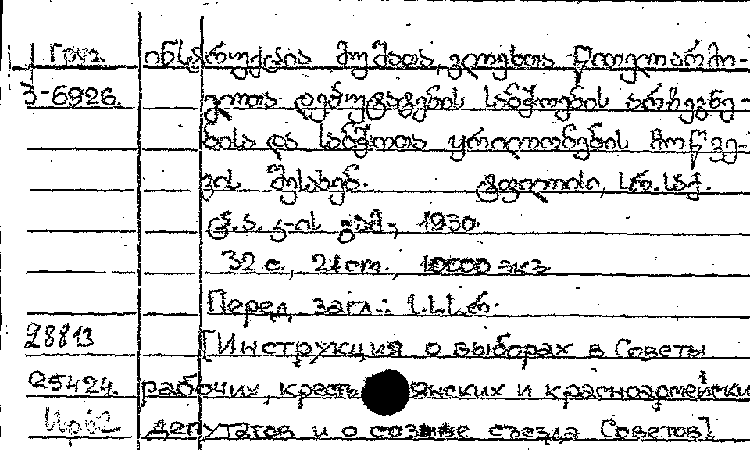 Груз. ინსტრუქცია მუშათა, გლეხთა წითელარმი-
3-6926. ელთა დეპუტატების საბჭოების არჩევნე-
ბისა და საბჭოთა ყრილობების მოწვე-
ვის შესახებ. ტფილისი, სრ. საქ.
ც.ა.კ-ის გამ., 1930.
32 с., 21 см., 10000 экз.
Перед загл.: ს.ს.ს.რ.
28813 [Инструкция о выборах в Советы
25424. рабочих, кресть янских и красноармейски
депутатов и о созыве съезда Советов]